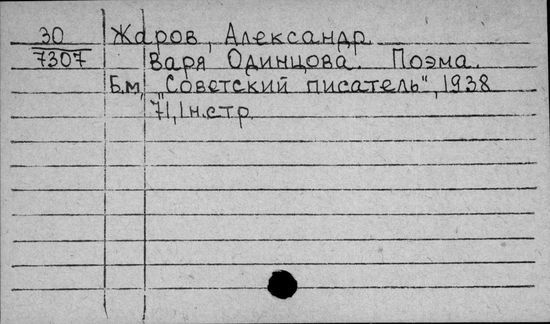 30 Жаров, Александр.
7307 Варя Одинцова. Поэма.
Б.м., "Советский писатель", 1938
71, 1 н.стр.